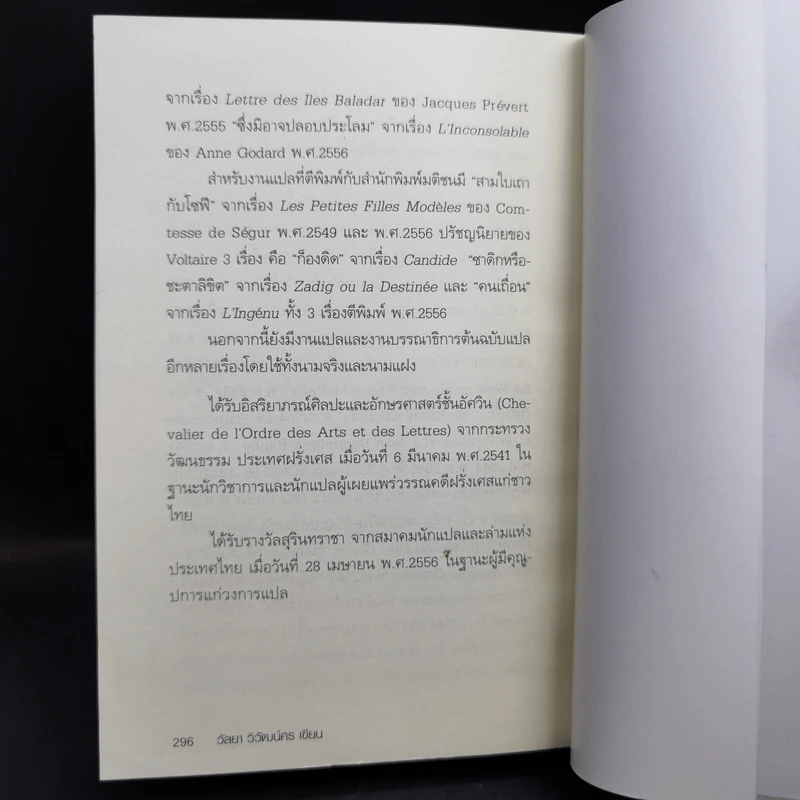 จากเรื่อง Lettre des Iles Baladar ของ Jacques Prévert
พ.ศ.2555 "ซึ่งมิอาจปลอบประโลม" จากเรื่อง L'Inconsolable
ของ Anne Godard พ.ศ.2556
สำหรับงานแปลที่ตีพิมพ์กับสำนักพิมพ์มติชนมี "สามใบเถา
กับโซฟี" จากเรื่อง Les Petites Filles Modèles ของ Com-
tesse de Ségur พ.ศ.2549 และ พ.ศ.2556 ปรัชญนิยายของ
Voltaire 3 เรื่อง คือ "ก็องดิด" จากเรื่อง Candide "ซาดิกหรือ-
ชะตาลิขิต" จากเรื่อง Zadig ou la Destinée และ "คนเถื่อน"
จากเรื่อง L'Ingénu ทั้ง 3 เรื่องตีพิมพ์ พ.ศ.2556
นอกจากนี้ยังมีงานแปลและงานบรรณาธิการต้นฉบับแปล
อีกหลายเรื่องโดยใช้ทั้งนามจริงและนามแฝง
ได้รับอิสริยาภรณ์ศิลปะและอักษรศาสตร์ชั้นอัศวิน (Che-
valier de l'Ordre des Arts et des Lettres) จากกระทรวง
วัฒนธรรม ประเทศฝรั่งเศส เมื่อวันที่ 6 มีนาคม พ.ศ.2541 ใน
ฐานะนักวิชาการและนักแปลผู้เผยแพร่วรรณคดีฝรั่งเศสแก่ชาว
ไทย
ได้รับรางวัลสุรินทราชา จากสมาคมนักแปลและล่ามแห่ง
ประเทศไทย เมื่อวันที่ 28 เมษายน พ.ศ.2556 ในฐานะผู้มีคุณู-
ปการแก่วงการแปล
296 วัลยา วิวัฒน์ศร เขียน